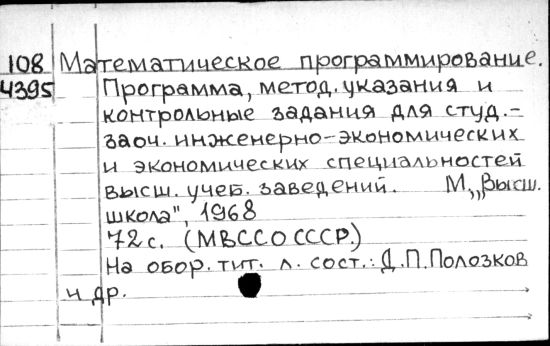 108 Математическое программирование.
4395 Программа, метод. указания и
контрольные задания для студ.-
заоч. инженерно-экономических
и экономических специальностей
высш. учеб. заведений. М., „Высш.
школа", 1968
72 с. (МВССО СССР.)
На обор. тит. л. сост.: Д.П.Полозков
и др.